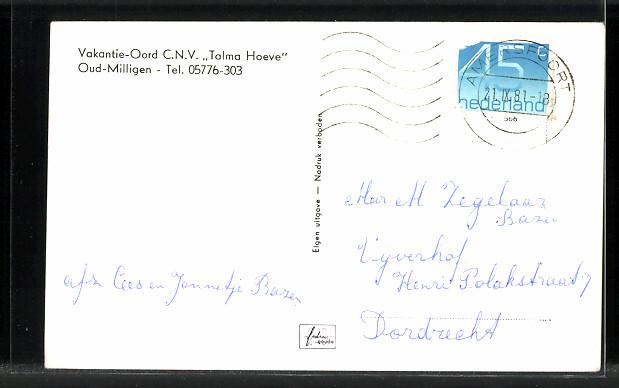 Vakantie-Oord C.N.V. „Talma Hoeve”
Oud-Milligen - Tel. 05776-303
45 c
nederland
AMERSFOORT
21.IX.81.-18
566
Eigen uitgave — Nadruk verboden
afz Cees en Jannetje Bazen
M Zegelaar
Bazen
Vyverhof
Henri Polakstraat 7
Dordrecht